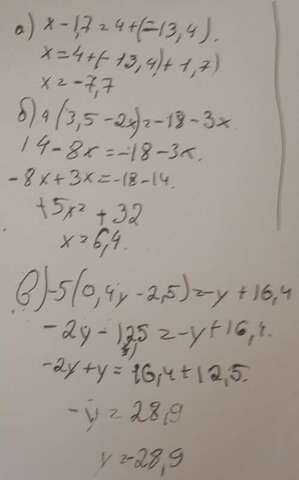 а) x - 1,7 = 4 + (-13,4).
x = 4 + (-13,4) + 1,7)
x = -7,7
б) 4(3,5 - 2x) = -18 - 3x.
14 - 8x = -18 - 3x.
-8x + 3x = -18 - 14.
+5x = +32
x = 6,4.
в) -5(0,4y - 2,5) = -y + 16,4
-2y - 12,5 = -y + 16,4.
-2y + y = 16,4 + 12,5.
-y = 28,9
y = -28,9